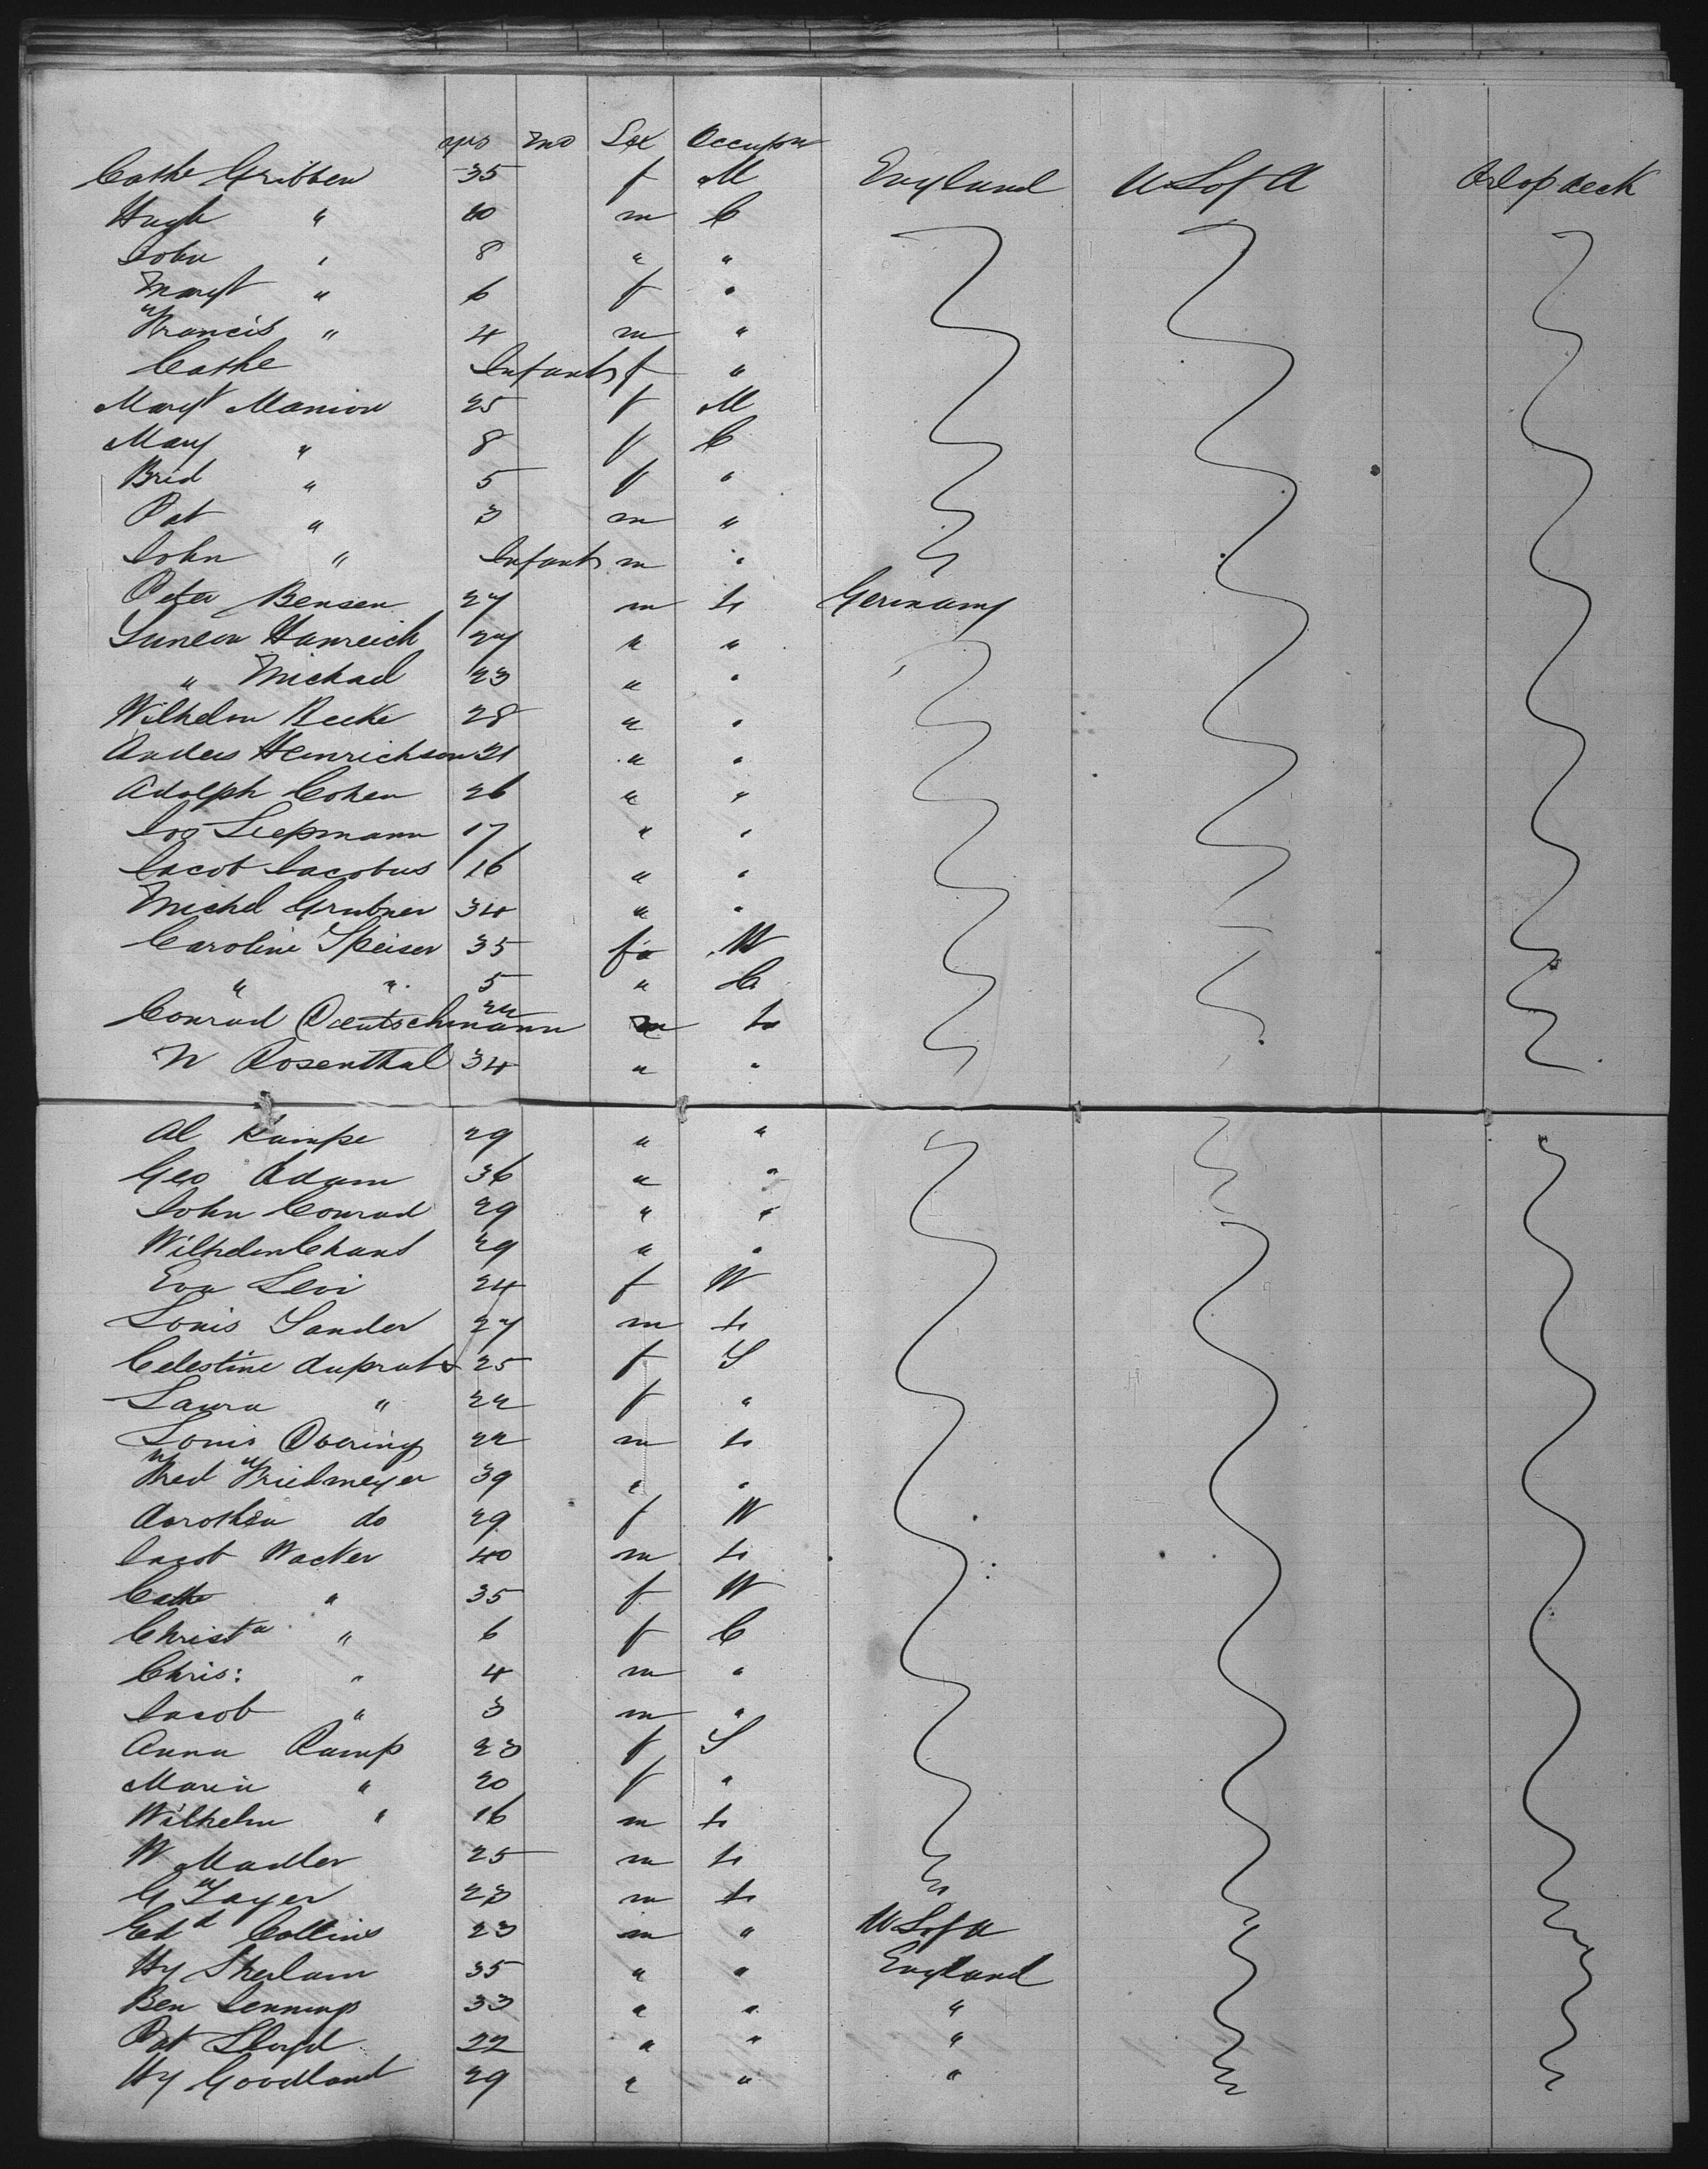 yrs mo Sex Occupn
Cathe Gribben 35 f M England U S of A Orlop deck
Hugh " 10 m C
John " 8 " "
Margt " 6 f "
Francis " 4 m "
Cathe Infant f "
Margt Manion 25 f M
Mary " 8 f C
Brid " 5 f "
Pat " 3 m "
John " Infant m "
Peter Bensen 27 m Germany
Hanreich 27 " "
" Michael 23 " "
Wilhelm Beeke 28 " "
Anders Heinrichson 21 " "
Adolph Cohen 26 " "
Jos Liepmann 17 " "
Jacob Jacobus 16 " "
Michel Grubner 34 " "
Caroline Speiser 35 f W
" " 5 " C
Conrad Deutschmann 24 m
N Rosenthal 34 " "
Al Kampe 29 " "
Geo Adam 36 " "
John Conrad 29 " "
Wilhelm 29 " "
Eva Levi 24 f W
Louis Sander 27 m
Celestine Duprat 25 f S
Laura " 22 f "
Louis Doering 22 m
Fred 39 " "
Dorothea do 29 f W
Jacob Wacker 40 m
Cathe " 35 f W
Christa " 6 f C
Chris: " 4 m "
Jacob " 3 m "
Anna Ramp 23 f S
Maria " 20 f "
Wilhelm " 16 m
W Madler 25 m
G Fayer 23 m
Edd Collins 23 m " U S of A
Hy 35 " " England
Ben Jennings 33 " " "
Pat Lloyd 22 " " "
Hy Goodland 29 " " "